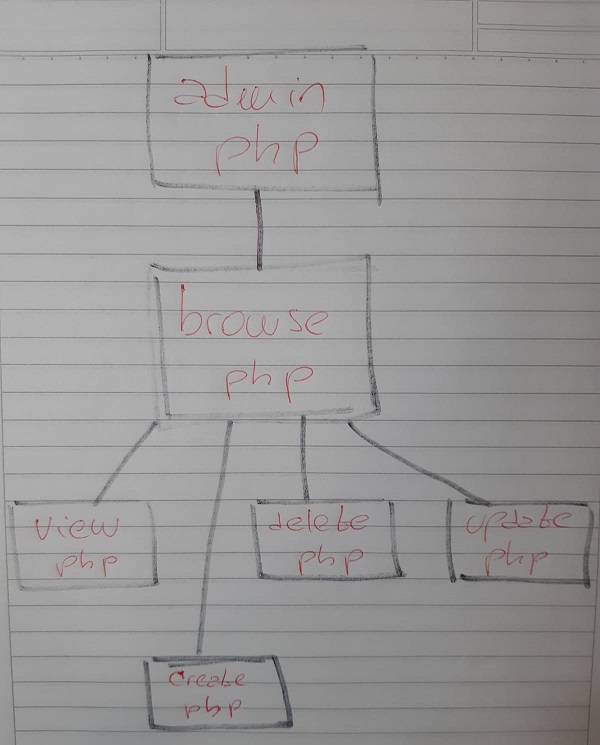 admin
php
browse
php
view
php
delete
php
update
php
create
php